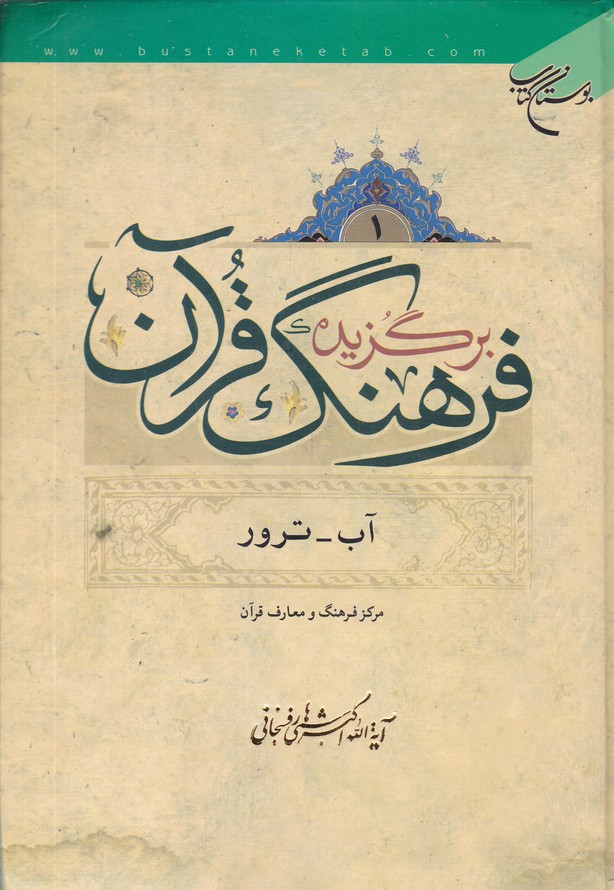 www.bustaneketab.com
بوستان کتاب
۱
برگزیده
فرهنگ قرآن
آب ـ ترور
مرکز فرهنگ و معارف قرآن
آیة الله اکبر هاشمی رفسنجانی